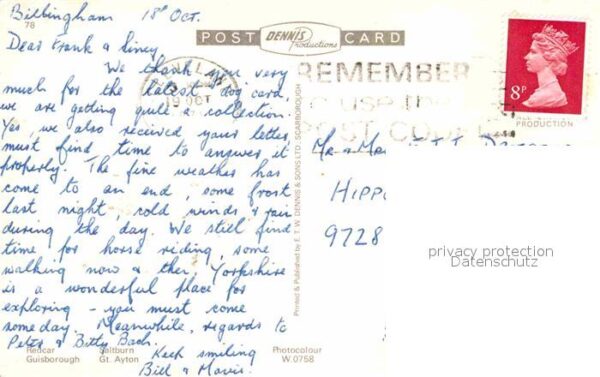 Billingham 18th Oct.
78
Dear Frank &
We thank you very
much for the latest dog card,
we are getting quite a collection.
Yes, we also received your letter,
must find time to answer it
properly. The fine weather has
come to an end, some frost
last night, cold winds & rain
during the day. We still find
time for horse riding, some
walking now & then. Yorkshire
is a wonderful place for
exploring - you must come
someday. Meanwhile, regards to
Peter & Betty Bach.
Keep smiling
Bill & Mavis.
Redcar Saltburn
Guisborough Gt. Ayton
Photocolour
W.0758
POST DENNIS Productions CARD
19 OCT
REMEMBER
USE THE
POST CODE
8P
PRODUCTION
Printed & Published by E. T. W. DENNIS & SONS LTD., SCARBOROUGH
MR & MRS
HIPPO
9728
privacy protection
Datenschutz